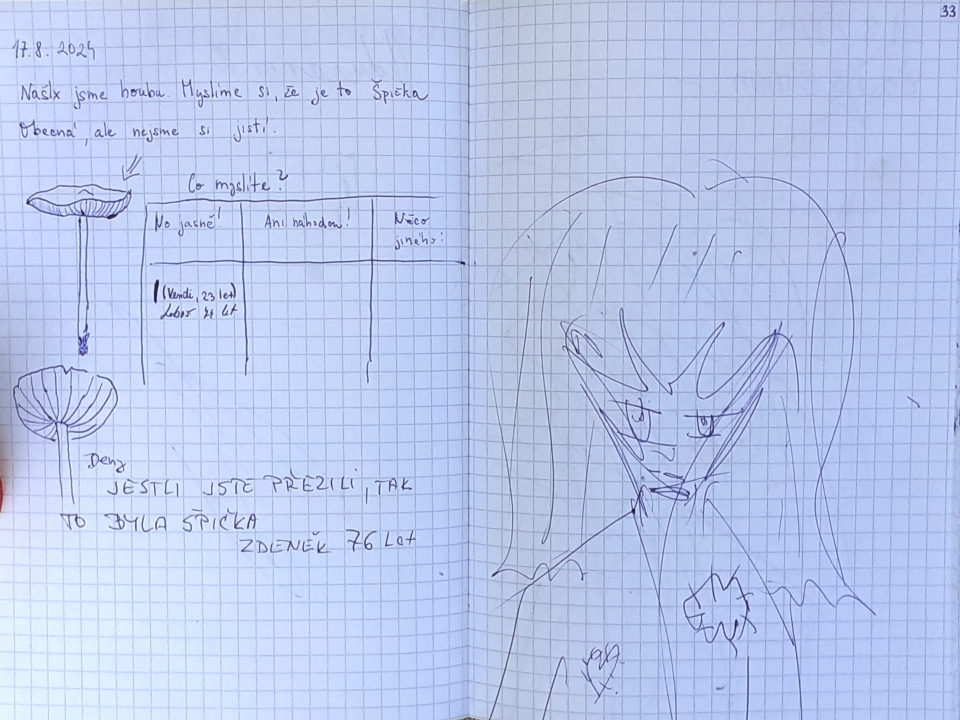 33
17. 8. 2024
Našlx jsme houbu. Myslíme si, že je to Špička
Obecná, ale nejsme si jistí.
Co myslíte?
No jasně!
Ani náhodou!
Něco
jiného:
(Vendi, 23 let)
Lubor 74 let
JESTLI JSTE PŘEŽILI, TAK
TO BYLA ŠPIČKA
ZDENĚK 76 Let